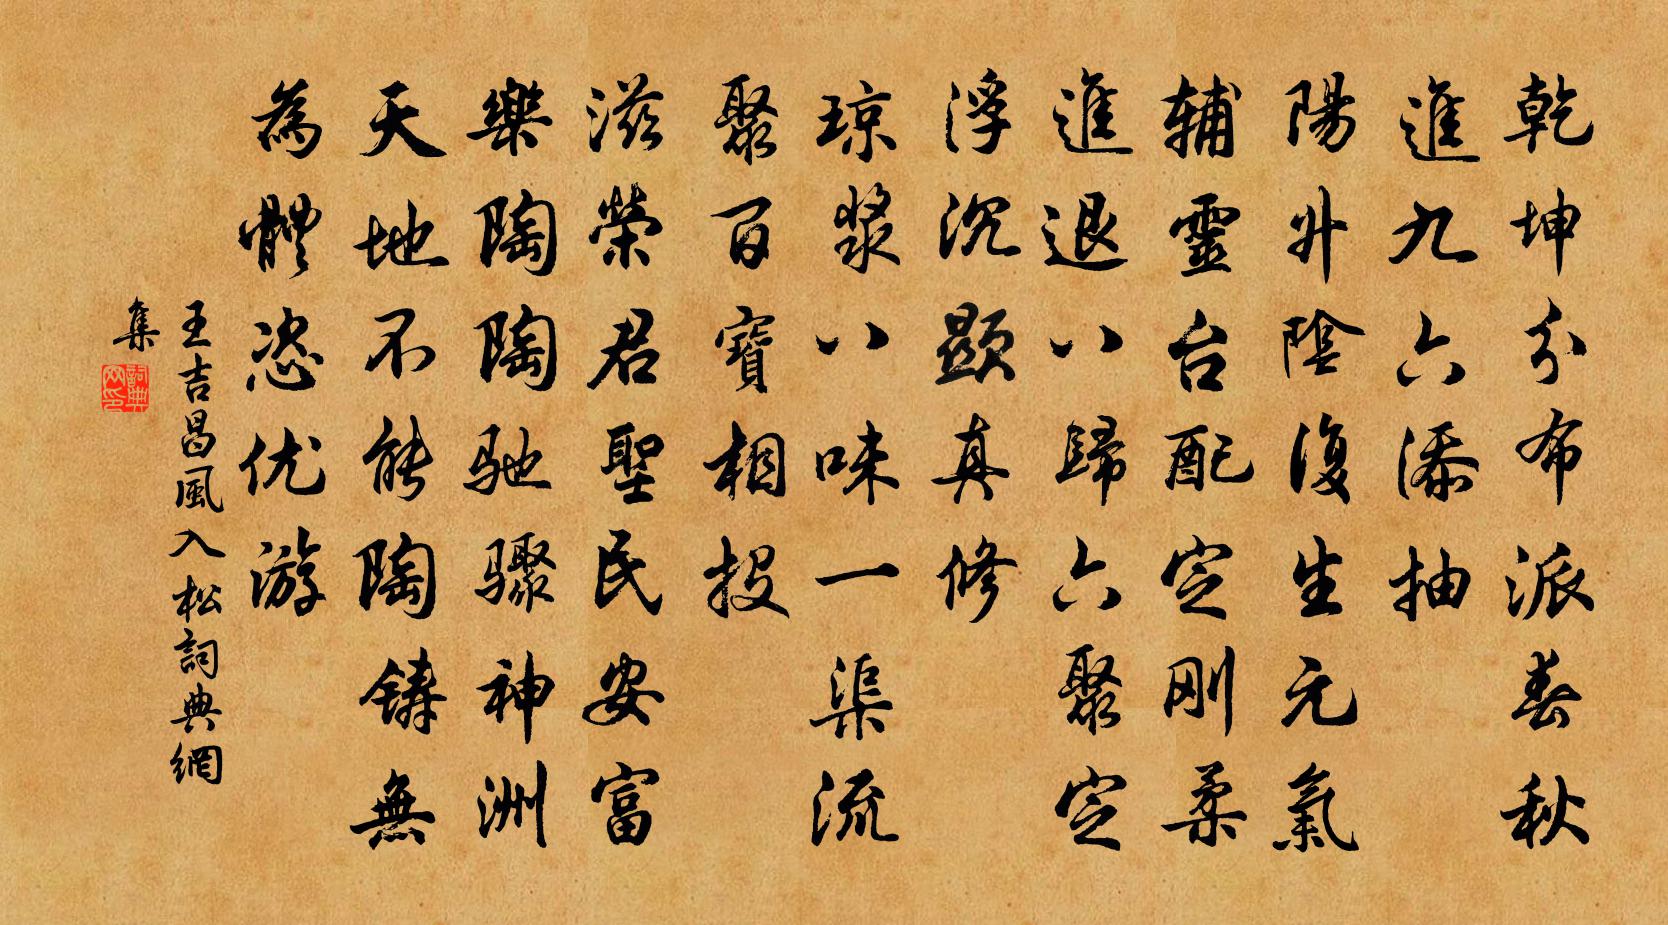 乾坤分布派春秋
進九六添抽
陽升陰復生元氣
辅靈台配定刚柔
進退八歸六聚定
浮沉顯真修
琼漿八味一渠流
聚百寶相投
滋榮君聖民安富
樂陶陶驰骤神洲
天地不能陶铸無
為體恣优游
王吉昌風入松詞典網
集
詞典网印